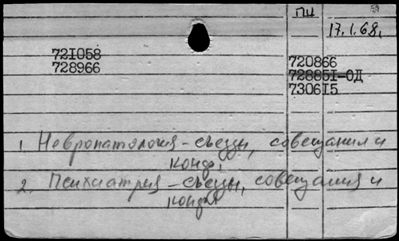 ПИ
17.1.68.
721058
728966
720866
728851-ОД
730615
1. Невропатология - съезды, совещания и
конф.
2. Психиатрия - съезды, совещания и
конф.